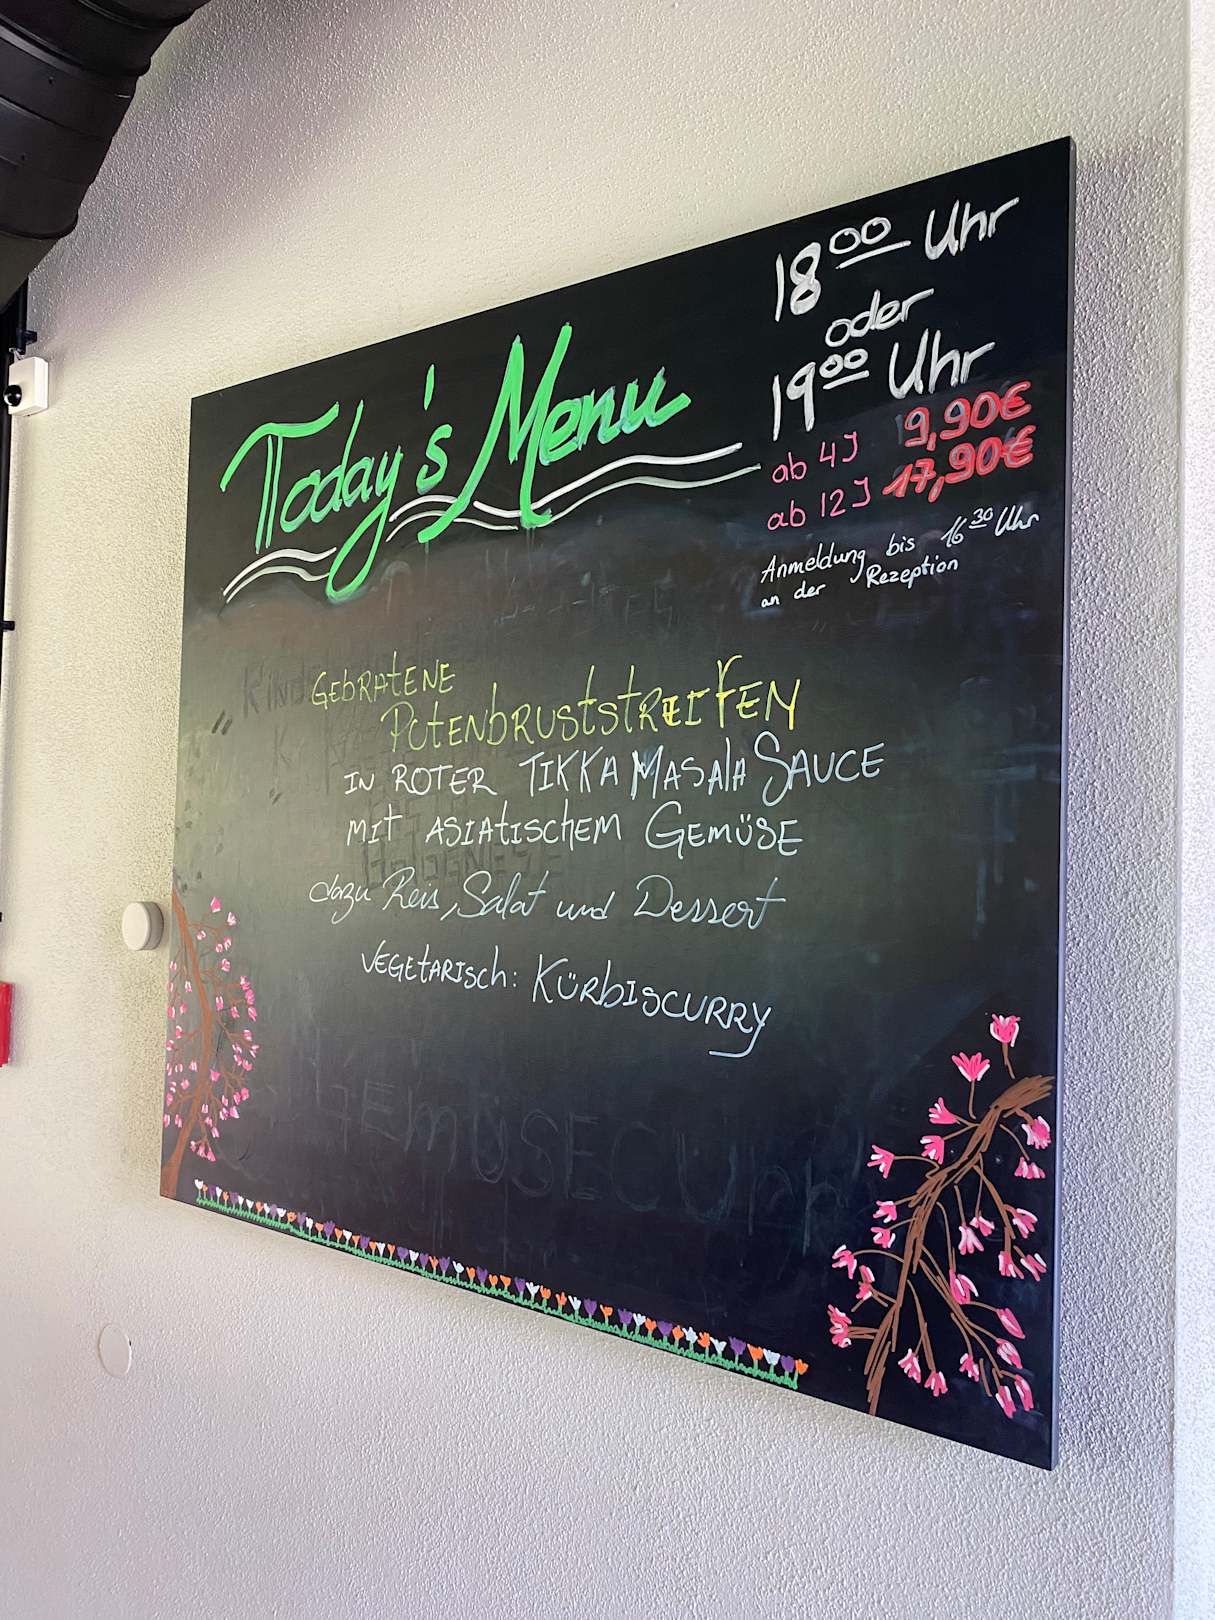 Today's Menu
18⁰⁰ Uhr
oder
19⁰⁰ Uhr
ab 4J 9,90€
ab 12J 17,90€
Anmeldung bis 16³⁰ Uhr
an der Rezeption
GEBRATENE
PUTENBRUSTSTREIFEN
IN ROTER TIKKA MASALA SAUCE
MIT ASIATISCHEM GEMÜSE
dazu Reis, Salat und Dessert
VEGETARISCH: KÜRBISCURRY